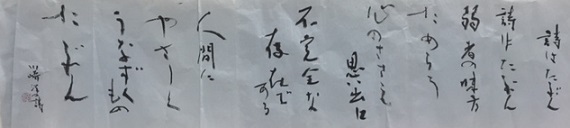 詩はたぶん
詩はたぶん
弱者の味方
ためらう
心のささえ
思い出は
不完全な
存在である
人間に
やさしく
うなずくもの
たぶん